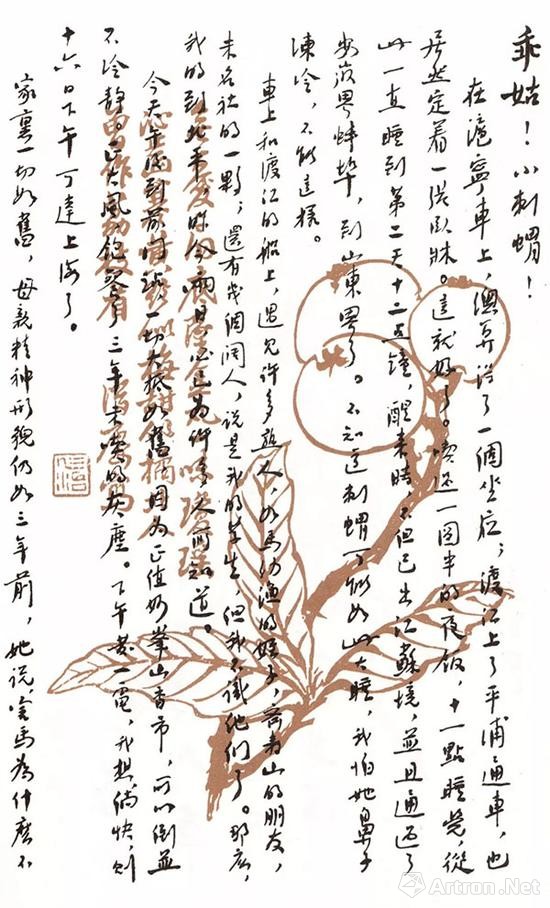 乖姑！小刺猬！
在滬寧車上，總算得了一個坐位；渡江上了平浦通車，也
居然定着一張臥牀。這就好了。吃過一圓半的夜飯，十一點睡覺，從
此一直睡到第二天十二點鐘，醒來時，不但已出江蘇境，並且通過了
安徽界蚌埠，到山東界了。不知道刺猬可能如此大睡，我怕她鼻子
凍冷，不能這樣。
車上和渡江的船上，遇見許多熟人，如馬幼漁的姪子，齊壽山的朋友，
未名社的一夥；還有幾個闊人，說是我的學生，但我不識他們了。那麽，
我的到北平，昨今兩日，必已為許多人所知道。
今天午後到前門站，一切大抵如舊，因為正值妙峯山香市，所以倒並
不冷静。正大風，飽餐了三年未吃的灰塵。下午發一電，我想，倘快，則
十六日下午可達上海了。
家裏一切如舊，母親精神形貌仍如三年前，她說，害馬為什麼不
Artron.Net